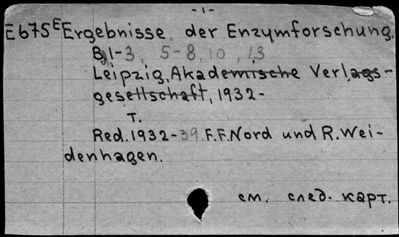 -1-
E675E Ergebnisse der Enzymforschung.
B.1-3, 5-8, 10, 13
Leipzig, Akademische Verlags-
gesellschaft, 1932-
T.
Red. 1932-39. F.F. Nord und R. Wei-
denhagen.
см. след. карт.